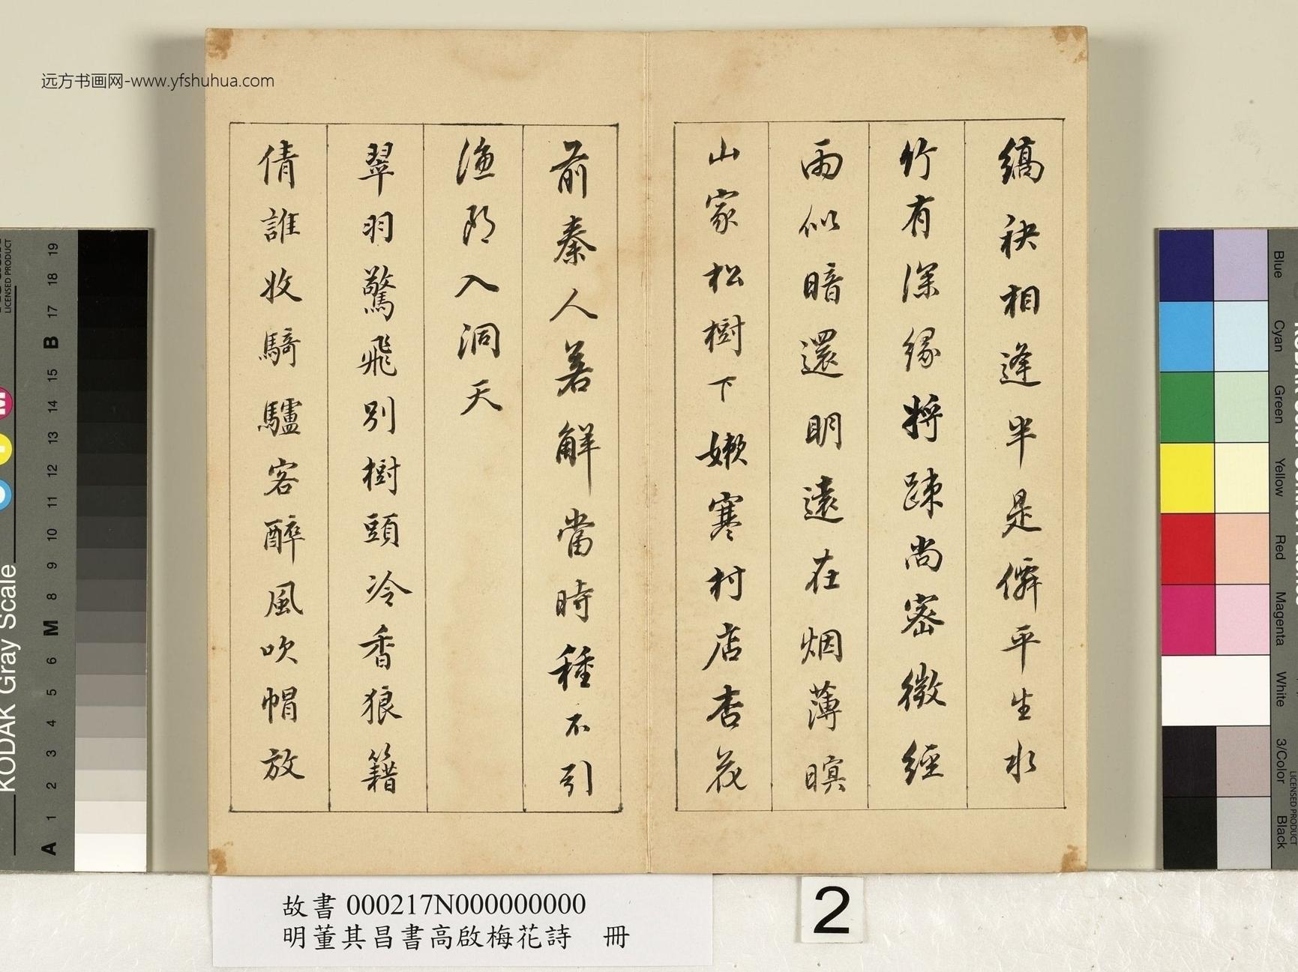 远方书画网-www.yfshuhua.com
縞袂相逢半是僊平生水
竹有深緣将疎尚密微經
雨似暗還明遠在烟薄暝
山家松樹下嫩寒村店杏花
前秦人若解當時種不引
漁郎入洞天
翠羽驚飛別樹頭冷香狼籍
倩誰收騎驢客醉風吹帽放
故書 000217N000000000
明董其昌書高啟梅花詩 冊
2
KODAK Gray Scale
LICENSED PRODUCT
A 1 2 3 4 5 6 M 8 9 10 11 12 13 14 15 B 17 18 19
Blue
Cyan
Green
Yellow
Red
Magenta
White
3/Color
Black
LICENSED PRODUCT